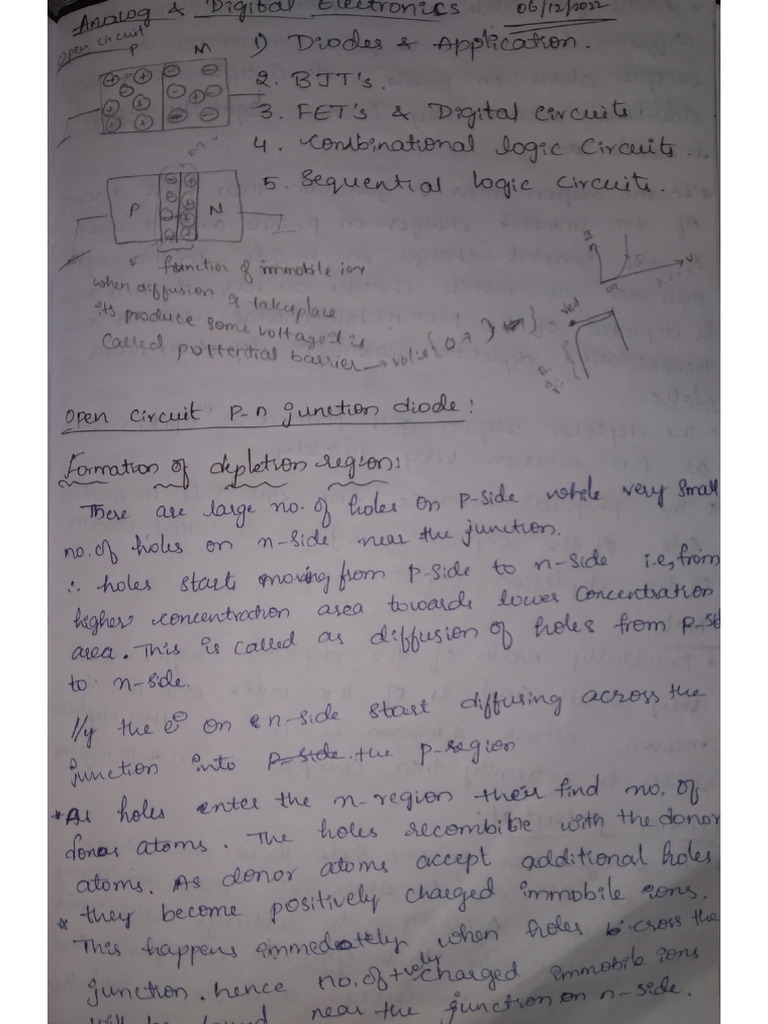 Analog & Digital Electronics 06/12/2022
open circuit
P N
1) Diodes & Application.
2. BJT's.
3. FET's & Digital circuits.
4. Combinational logic Circuits.
5. Sequential logic circuits.
P N
function of immobile ion
when diffusion is takeplace
its produce some voltage is
Called pottential barrier → volts
open circuit P-n junction diode:
Formation of depletion region:
There are large no. of holes on p-side while very small
no. of holes on n-side near the junction.
∴ holes start moving from p-side to n-side i.e, from
higher concentration area towards lower concentration
area. This is called as diffusion of holes from p-si
to n-side.
lly the e⊖ on n-side start diffusing across the
junction into p-side. the p-region
* As holes enter the n-region their find no. of
donor atoms. The holes recombine with the donor
atoms. As donor atoms accept additional holes
* they become positively charged immobile ions.
This happens immediately when holes cross the
junction. hence no. of +vely charged immobile ions
near the junction on n-side.